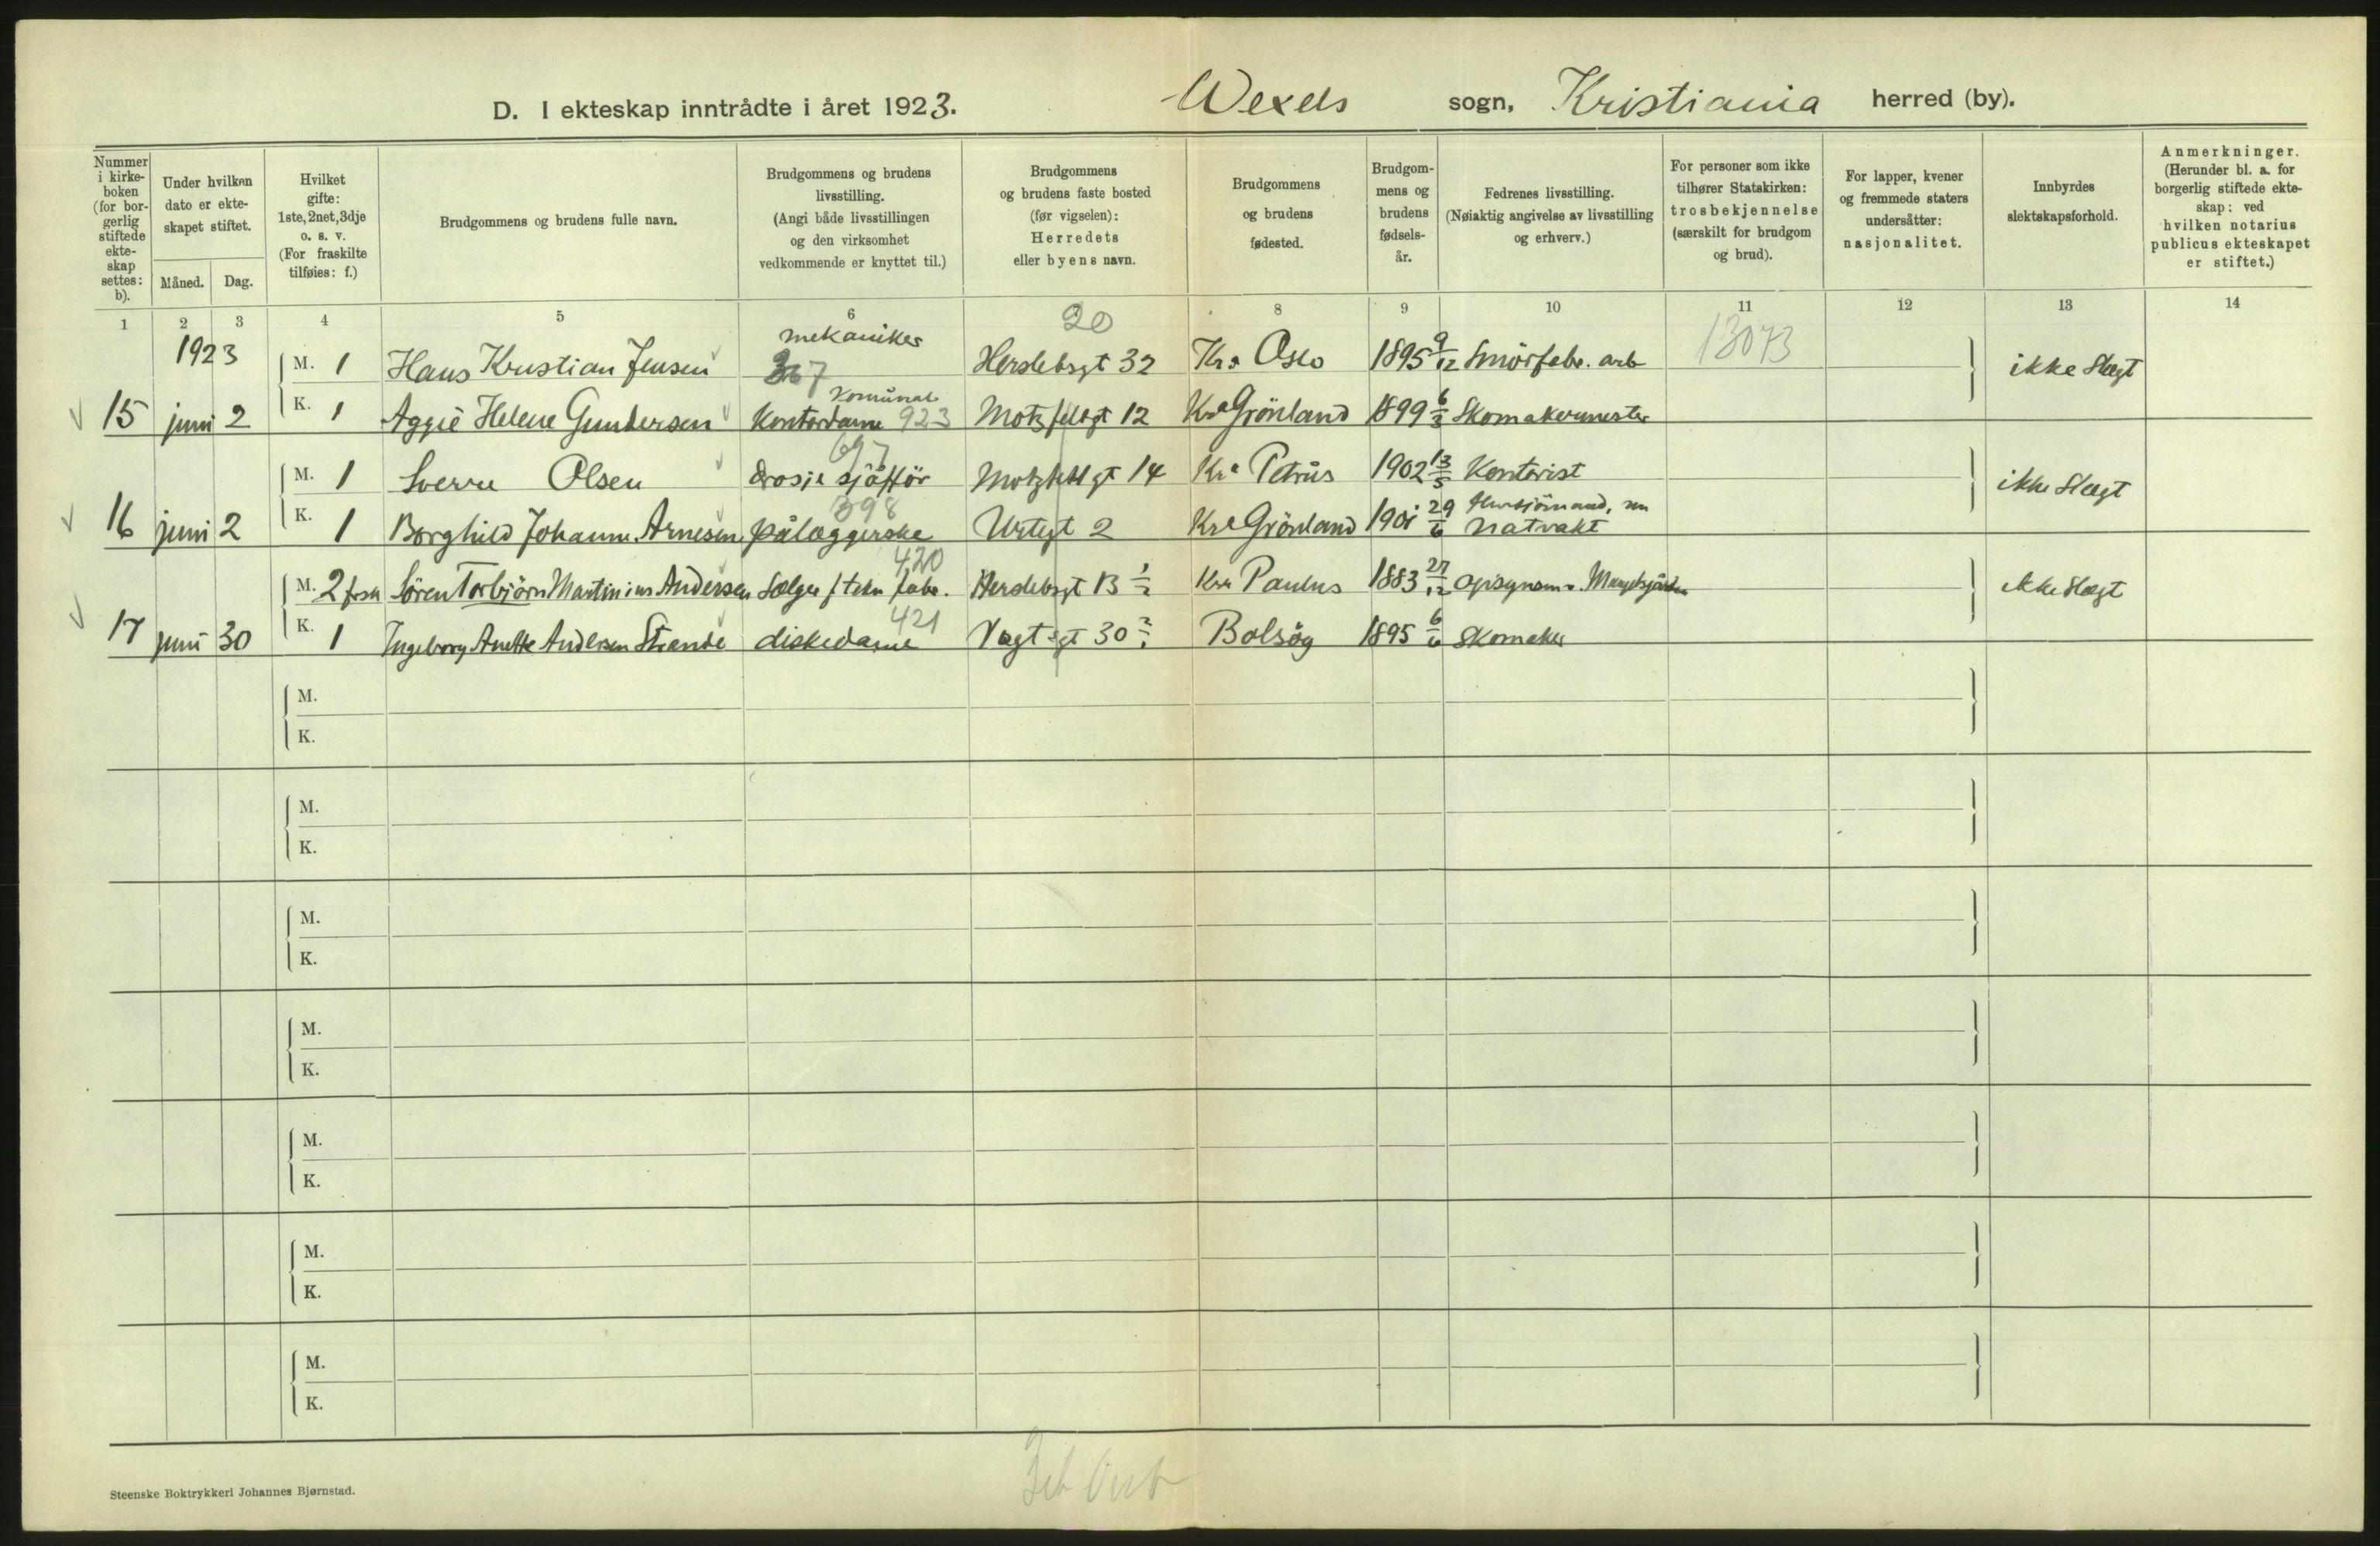 D. I ekteskap inntrådte i året 1923. Wexels sogn, Kristiania herred (by).
Nummer i kirkeboken (for borgerlig stiftede ekteskap settes: b).
Under hvilken dato er ekteskapet stiftet.
Måned. Dag.
Hvilket gifte: 1ste, 2net, 3dje o. s. v. (For fraskilte tilføies: f.)
Brudgommens og brudens fulle navn.
Brudgommens og brudens livsstilling. (Angi både livsstillingen og den virksomhet vedkommende er knyttet til.)
Brudgommens og brudens faste bosted (før vigselen): Herredets eller byens navn.
Brudgommens og brudens fødested.
Brudgommens og brudens fødselsår.
Fedrenes livsstilling. (Nøiaktig angivelse av livsstilling og erhverv.)
For personer som ikke tilhører Statskirken: trosbekjennelse (særskilt for brudgom og brud).
For lapper, kvener og fremmede staters undersåtter: nasjonalitet.
Innbyrdes slektskapsforhold.
Anmerkninger. (Herunder bl. a. for borgerlig stiftede ekteskap: ved hvilken notarius publicus ekteskapet er stiftet.)
1 2 3 4 5 6 8 9 10 11 12 13 14
20
1923 M. 1 Hans Kristian Jensen mekaniker 367 Herslebsgt 32 Kra Oslo 1895 9/12 Smörfabr. arb 13073 ikke Slægt
15 juni 2 K. 1 Aggie Helene Gundersen Komunal Kontordame 923 Motzfeldtgt 12 Kra Grönland 1899 6/3 Skomakermester
M. 1 Sverre Olsen 697 drosje sjåfför Motzfeldtgt 14 Kra Petrus 1902 13/5 Kontorist ikke Slægt
16 juni 2 K. 1 Borghild Johanne Arnesen 398 pålæggerske Urtegt 2 Kra Grönland 1901 29/6 natvakt
M. 2 frsk Sören Torbjörn Martinius Andersen Sælger f tekn fabr. 420 Herslebsgt 13 Kra Paulus 1883 27/12 opsynsm. ikke Slægt
17 juni 30 K. 1 Ingeborg Anette Andersen Strande diskedame 421 Vagtsgt 30 Bolsöy 1895 6/6 Skomaker
M.
K.
M.
K.
M.
K.
M.
K.
M.
K.
M.
K.
M.
K.
Steenske Boktrykkeri Johannes Bjørnstad.